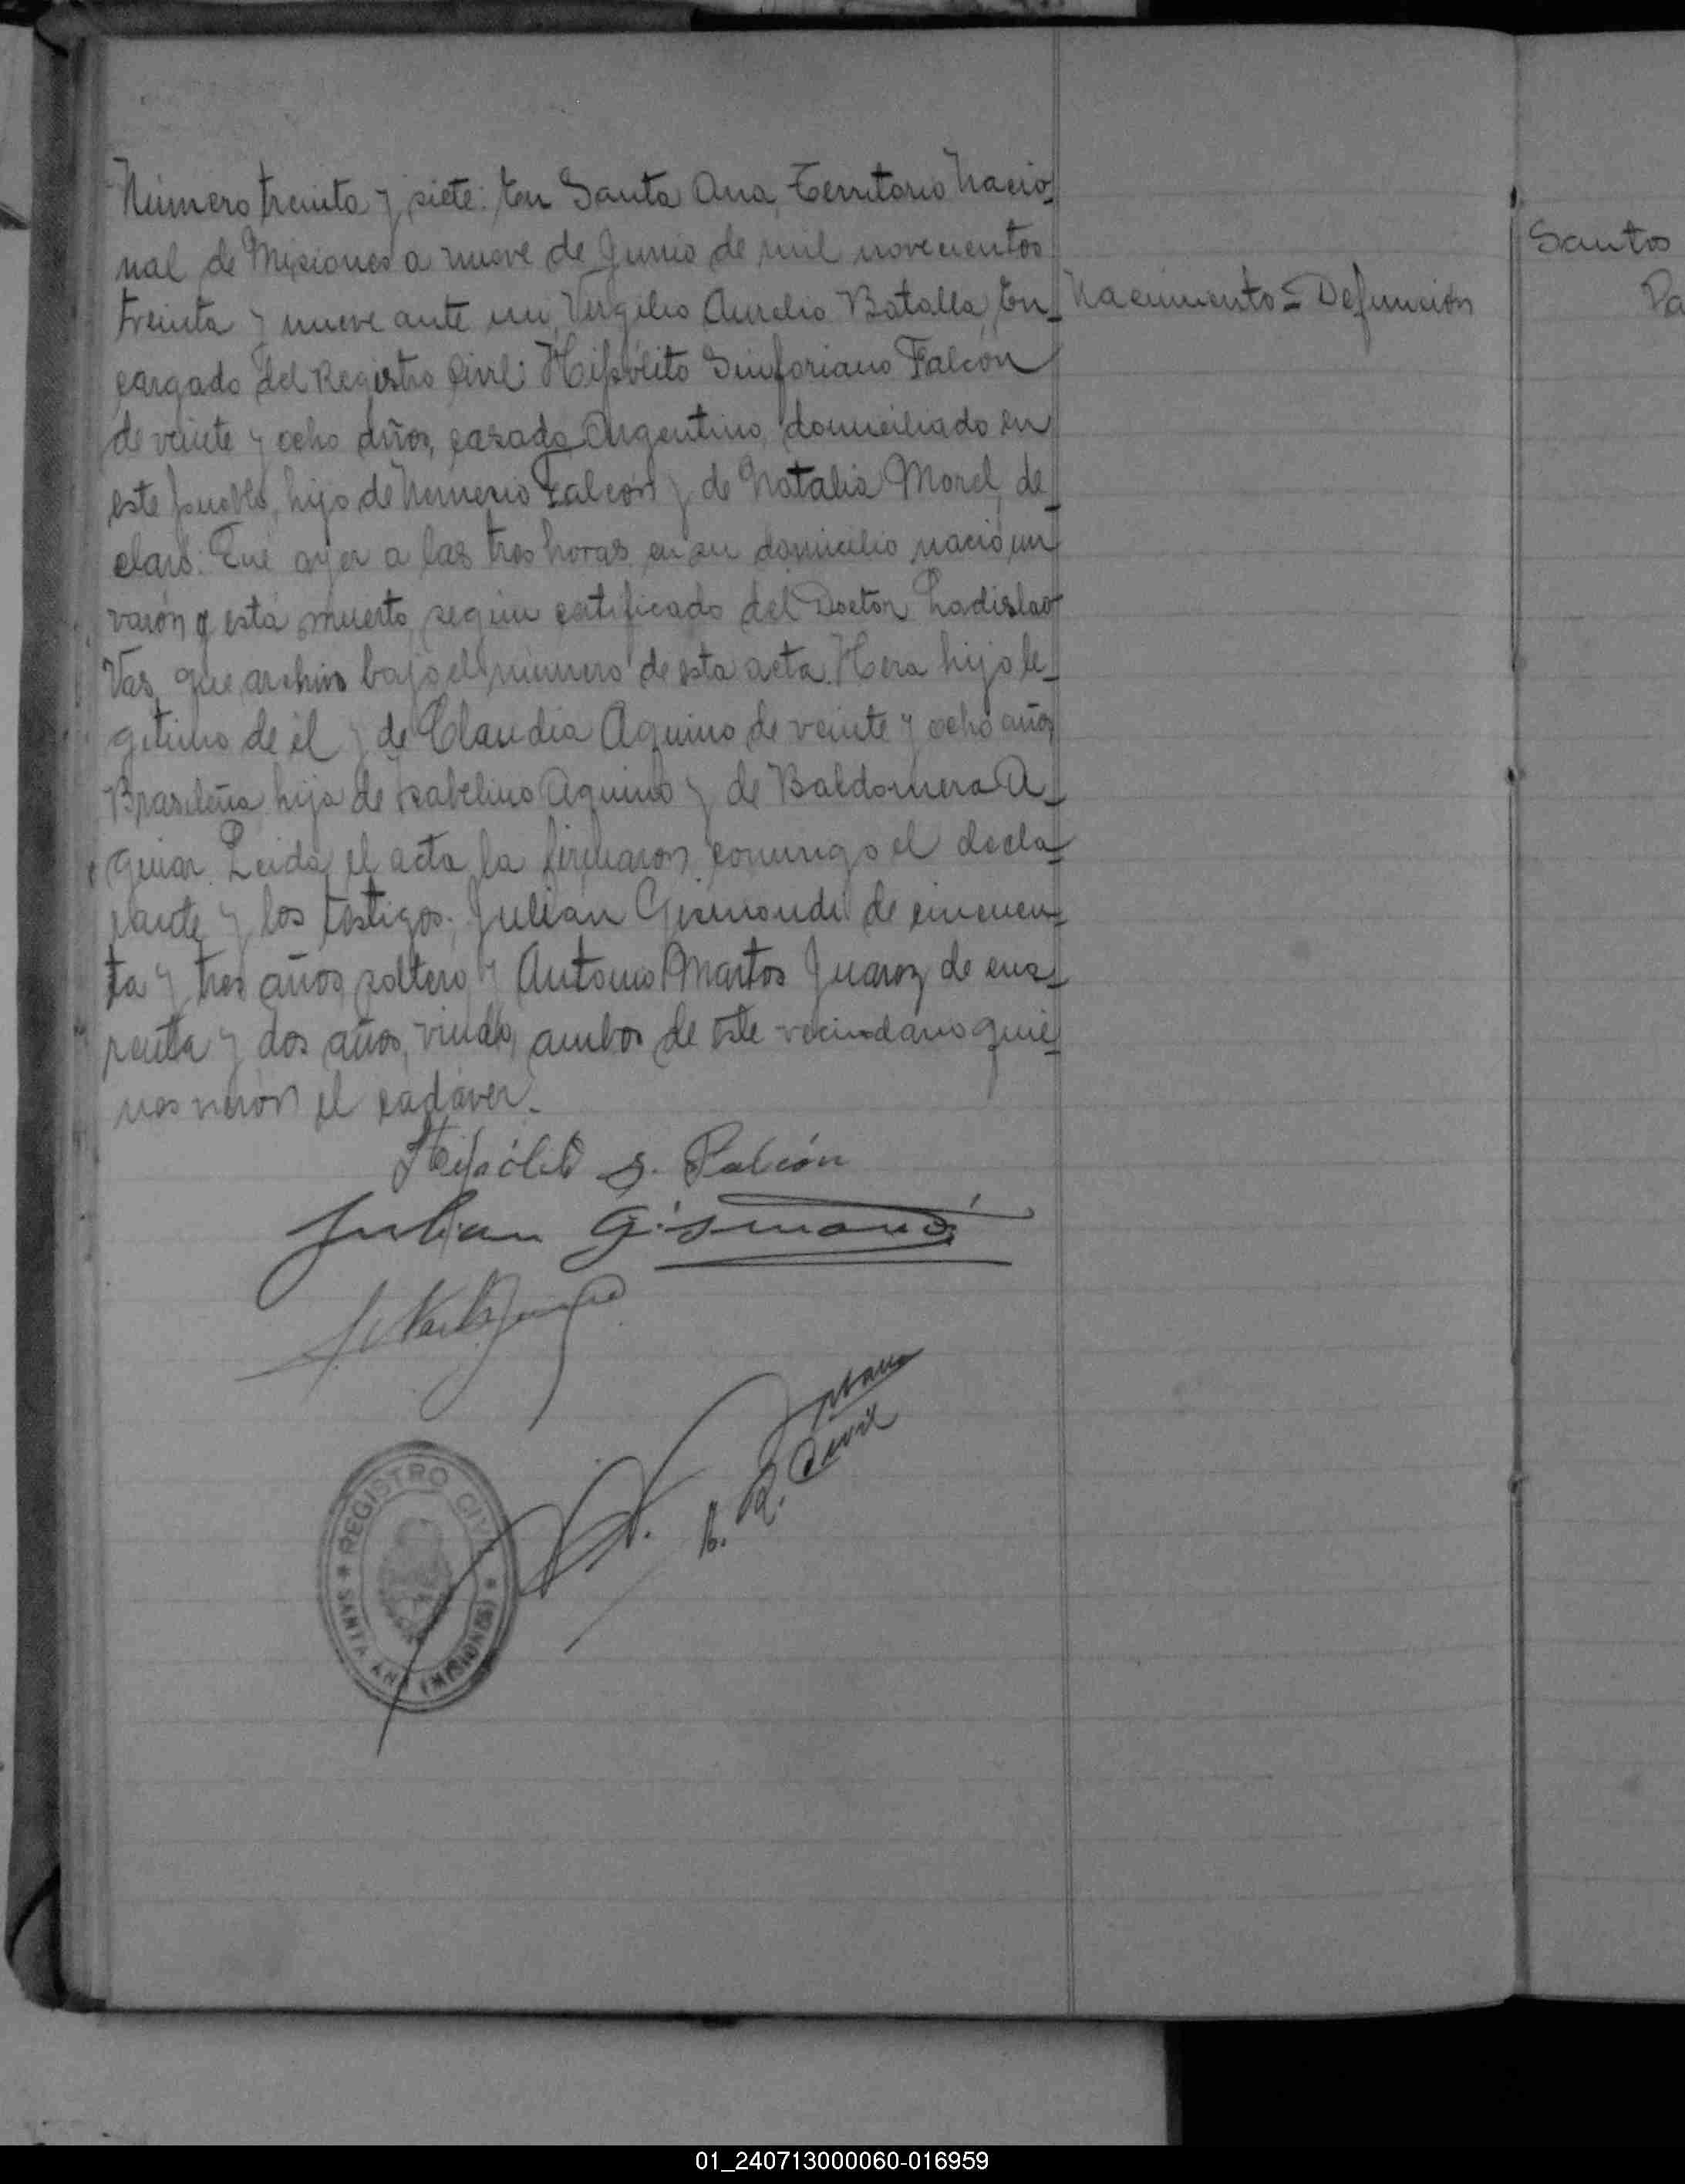 Número treinta y siete: En Santa Ana, Territorio Nacio-
nal de Misiones a nueve de Junio de mil novecientos
treinta y nueve ante mi, Virgilio Aurelio Batalla, En-
cargado del Registro Civil: Hipólito Sinforiano Falcón
de veinte y ocho años, casado Argentino, domiciliado en
este pueblo, hijo de Nemesio Falcón y de Natalia Morel, de-
claró: Que ayer a las tres horas en su domicilio nació un
varón q está muerto, según certificado del Doctor Ladislao
Vas, que archivo bajo el número de esta acta. Hera hijo le-
gitimo de él y de Claudia Aquino de veinte y ocho años
Brasileña hija de Isabelino Aquino y de Baldomera A-
guiar. Leida el acta la firmaron conmigo el decla-
rante y los testigos: Julián Gismondi de cincuen-
ta y tres años, soltero y Antonio Martos Juarez de cua-
renta y dos años, viudo, ambos de este vecindario quie-
nes vieron el cadáver.
Nacimiento = Defunción
Hipólito S. Falcón
Julian Gismondi
R. Civil
REGISTRO CIVIL
* SANTA ANA (MISIONES) *
Santos
Pa
01_240713000060-016959